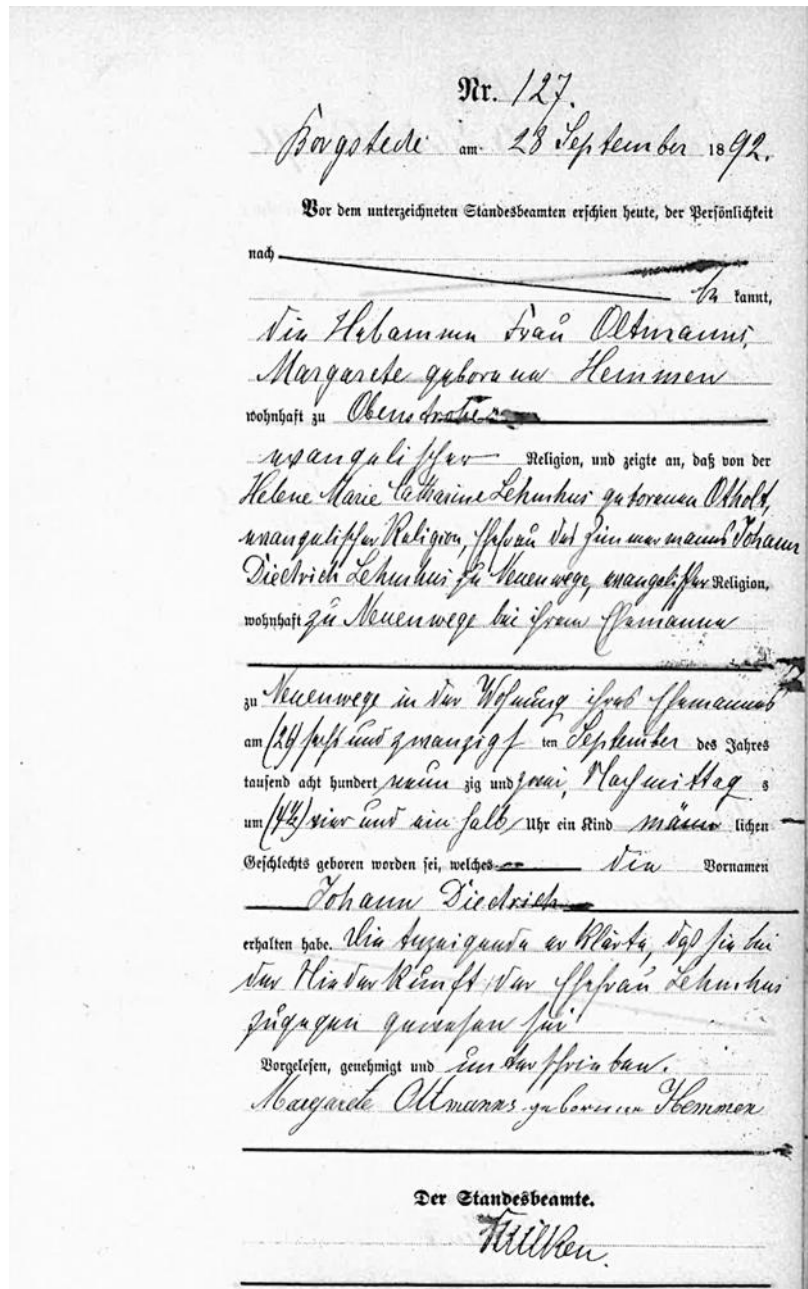 Nr. 127.
Borgstede am 28 September 1892.
Vor dem unterzeichneten Standesbeamten erschien heute, der Persönlichkeit
nach
be kannt,
die Hebamme Frau Oltmanns,
Margarete geborene Hemmen
wohnhaft zu Obenstrohe
evangelischer Religion, und zeigte an, daß von der
Helene Marie Catharine Lehmhus geborenen Otholt,
evangelischer Religion, Ehefrau des Zimmermanns Johann
Diedrich Lehmhus zu Neuenwege, evangelischer Religion,
wohnhaft zu Neuenwege bei ihrem Ehemanne
zu Neuenwege in der Wohnung ihres Ehemannes
am (26) sechs und zwanzigs ten September des Jahres
tausend acht hundert neun zig und zwei, Nachmittag s
um (4½) vier und ein halb Uhr ein Kind männ lichen
Geschlechts geboren worden sei, welches die Vornamen
Johann Diedrich
erhalten habe. Die Anzeigende erklärte, daß sie bei
der Niederkunft der Ehefrau Lehmhus
zugegen gewesen sei
Vorgelesen, genehmigt und unterschrieben.
Margarete Oltmanns geborene Hemmen
Der Standesbeamte.